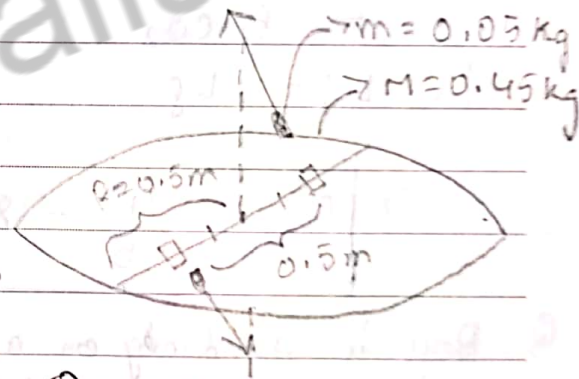 m = 0.05 kg
M = 0.45 kg
R=0.5m
0.5m